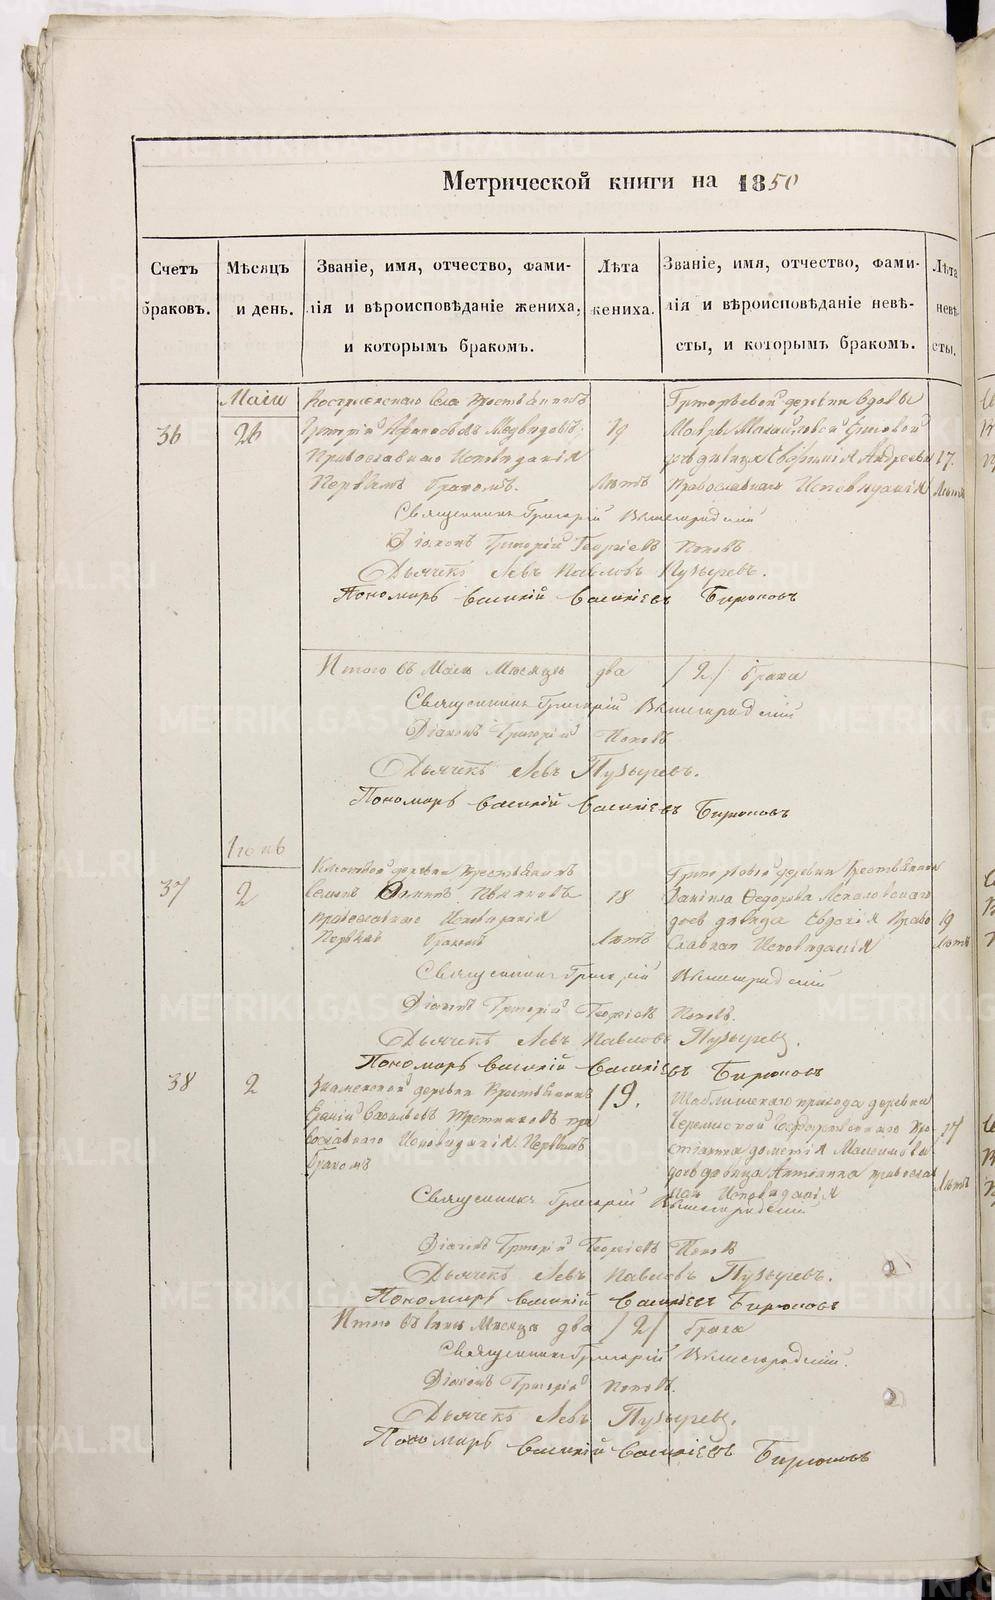 Метрической книги на 1850
Счетъ браковъ.
Мѣсяцъ и день.
Званіе, имя, отчество, фами-
лія и вѣроисповѣданіе жениха,
и которымъ бракомъ.
Лѣта
жениха.
Званіе, имя, отчество, фами-
лія и вѣроисповѣданіе невѣ-
сты, и которымъ бракомъ.
Лѣта
невѣ-
сты.
Маія
36
26
села Крестьянинъ
Григорій Медведевъ
Православнаго Исповѣданія
Первымъ бракомъ.
19
Лѣтъ
Григорьевой деревни вдовы
Мавры
дочь дѣвица Андреева
Православнаго Исповѣданія
17.
Лѣтъ
Священникъ Григорій Вышегородскій
Діаконъ Григорій Георгіевъ Поповъ
Дьячекъ Левъ Павловъ Пузыревъ.
Пономарь Василій Василіевъ Бирюковъ
Итого въ Маіѣ Мѣсяцѣ два /2/ брака
Священникъ Григорій Вышегородскій
Діаконъ Григорій Поповъ
Дьячекъ Левъ Пузыревъ.
Пономарь Василій Василіевъ Бирюковъ
Іюнь
37
2
деревни Крестьянинъ
Православнаго Исповѣданія
Первымъ бракомъ
18
Лѣтъ
Григорьевой деревни Крестьянина
Даніила Федорова
дочь дѣвица Евдокія Право
славнаго Исповѣданія
19
Лѣтъ
Священникъ Григорій Вышегородскій
Діаконъ Григорій Георгіевъ Поповъ.
Дьячекъ Левъ Павловъ Пузыревъ.
Пономарь Василій Василіевъ Бирюковъ
38
2
Знаменской деревни Крестьянинъ
Васильевъ Третьяковъ пра
вославнаго Исповѣданія Первымъ
бракомъ
19.
прихода деревни
Черемисской Кре
стьянина Дометія Максимова
дочь дѣвица Антонина православ
наго Исповѣданія
17
Лѣтъ
Священникъ Григорій Вышегородскій
Діаконъ Григорій Георгіевъ Поповъ
Дьячекъ Левъ Павловъ Пузыревъ.
Пономарь Василій Василіевъ Бирюковъ
Итого въ Іюнѣ Мѣсяцѣ два /2/ брака
Священникъ Григорій Вышегородскій.
Діаконъ Григорій Поповъ.
Дьячекъ Левъ Пузыревъ.
Пономарь Василій Василіевъ Бирюковъ
METRIKI.GASO-URAL.RU